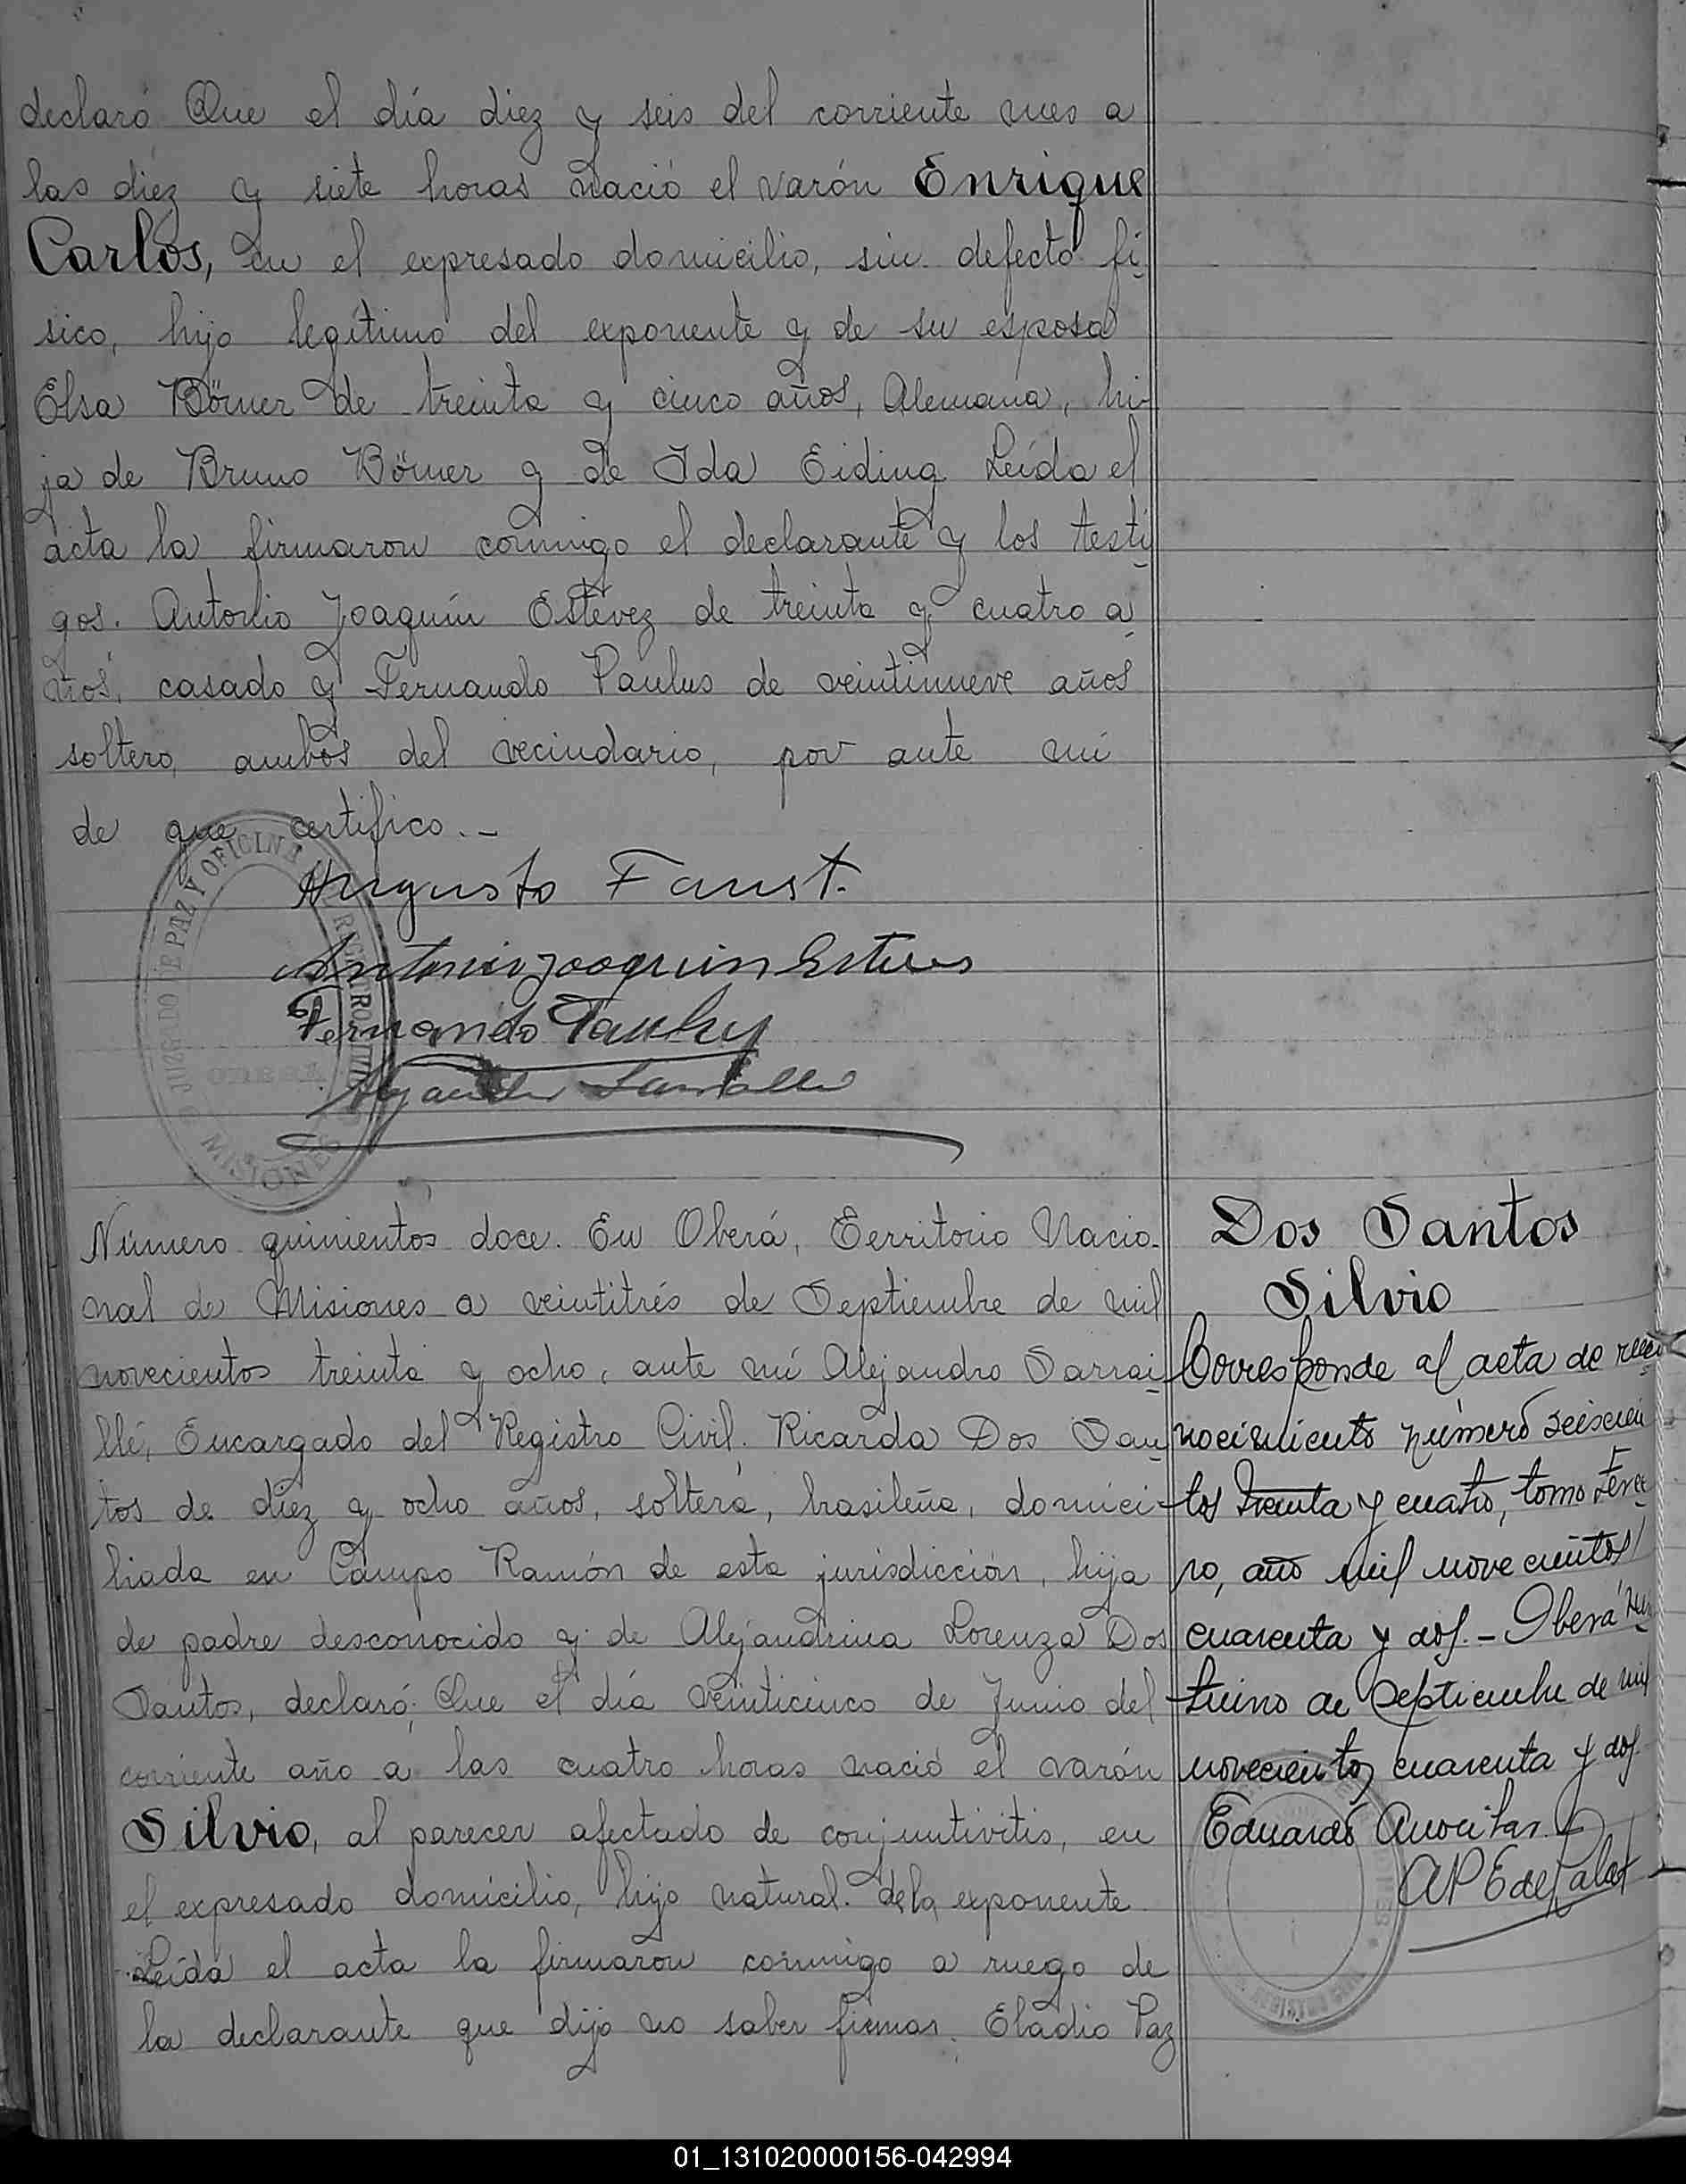 declaró Que el día diez y seis del corriente mes a
las diez y siete horas nació el varón Enrique
Carlos, en el expresado domicilio, sin defecto fí
sico, hijo legítimo del exponente y de su esposa
Elsa Börner de treinta y cinco años, Alemana, hi-
ja de Bruno Börner y de Ida Eiding Leída el
acta la firmaron conmigo el declarante y los testi
gos. Antonio Joaquín Estevez de treinta y cuatro a
ños, casado y Fernando Paulus de veintinueve años
soltero, ambos del vecindario, por ante mi
de que certifico.-
Augusto Faust.
Antonio Joaquin Esteves
Fernando
JUZGADO DE PAZ Y OFICINA REGISTRO CIVIL
OBERA
MISIONES
Número quinientos doce. En Oberá, Territorio Nacio-
nal de Misiones a veintitrés de Septiembre de mil
novecientos treinta y ocho, ante mí Alejandro Sarrai
llé, Encargado del Registro Civil. Ricarda Dos San
tos de diez y ocho años, soltera, brasileña, domici-
liada en Campo Ramón de esta jurisdicción, hija
de padre desconocido y de Alejandrina Lorenza Dos
Santos, declaró: Que el día veinticinco de Junio del
corriente año a las cuatro horas nació el varón
Silvio, al parecer afectado de conjuntivitis, en
el expresado domicilio, hijo natural de la exponente.
Leída el acta la firmaron conmigo a ruego de
la declarante que dijo no saber firmar, Eladio Paz
Dos Santos
Silvio
Corresponde al acta de reco
nocimiento número seiscien
tos treinta y cuatro, tomo terce
ro, año mil novecientos
cuarenta y dos.- Oberá
de Septiembre de mil
novecientos cuarenta y dos.
Eduardo
01_131020000156-042994